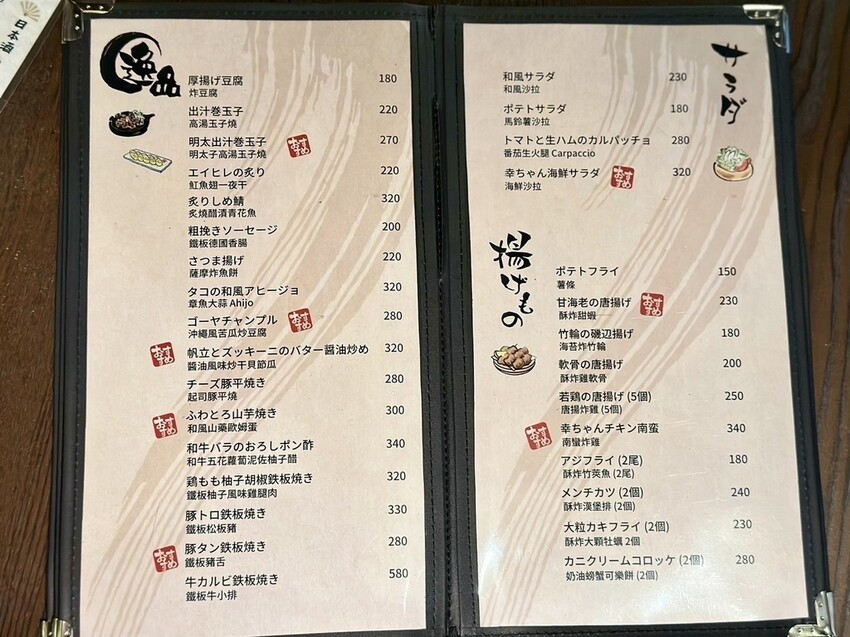 日本酒
逸品
厚揚げ豆腐 180
炸豆腐
出汁巻玉子 220
高湯玉子燒
明太出汁巻玉子 おすすめ 270
明太子高湯玉子燒
エイヒレの炙り 220
魟魚翅一夜干
炙りしめ鯖 320
炙燒醋漬青花魚
粗挽きソーセージ 200
鐵板德國香腸
さつま揚げ 220
薩摩炸魚餅
タコの和風アヒージョ 320
章魚大蒜 Ahijo
ゴーヤチャンプル おすすめ 280
沖繩風苦瓜炒豆腐
おすすめ 帆立とズッキーニのバター醤油炒め 320
醬油風味炒干貝節瓜
チーズ豚平焼き 280
起司豚平燒
おすすめ ふわとろ山芋焼き 300
和風山藥歐姆蛋
和牛バラのおろしポン酢 340
和牛五花蘿蔔泥佐柚子醋
鶏もも柚子胡椒鉄板焼き 320
鐵板柚子風味雞腿肉
豚トロ鉄板焼き 330
鐵板松板豬
おすすめ 豚タン鉄板焼き 280
鐵板豬舌
牛カルビ鉄板焼き 580
鐵板牛小排
サラダ
和風サラダ 230
和風沙拉
ポテトサラダ 180
馬鈴薯沙拉
トマトと生ハムのカルパッチョ 280
番茄生火腿 Carpaccio
幸ちゃん海鮮サラダ おすすめ 320
海鮮沙拉
揚げもの
ポテトフライ 150
薯條
甘海老の唐揚げ おすすめ 230
酥炸甜蝦
竹輪の磯辺揚げ 180
海苔炸竹輪
軟骨の唐揚げ 200
酥炸雞軟骨
若鶏の唐揚げ (5個) 250
唐揚炸雞 (5個)
おすすめ 幸ちゃんチキン南蛮 340
南蠻炸雞
アジフライ (2尾) 180
酥炸竹莢魚 (2尾)
メンチカツ (2個) 240
酥炸漢堡排 (2個)
大粒カキフライ (2個) 230
酥炸大顆牡蠣 2個
カニクリームコロッケ (2個) 280
奶油螃蟹可樂餅 (2個)